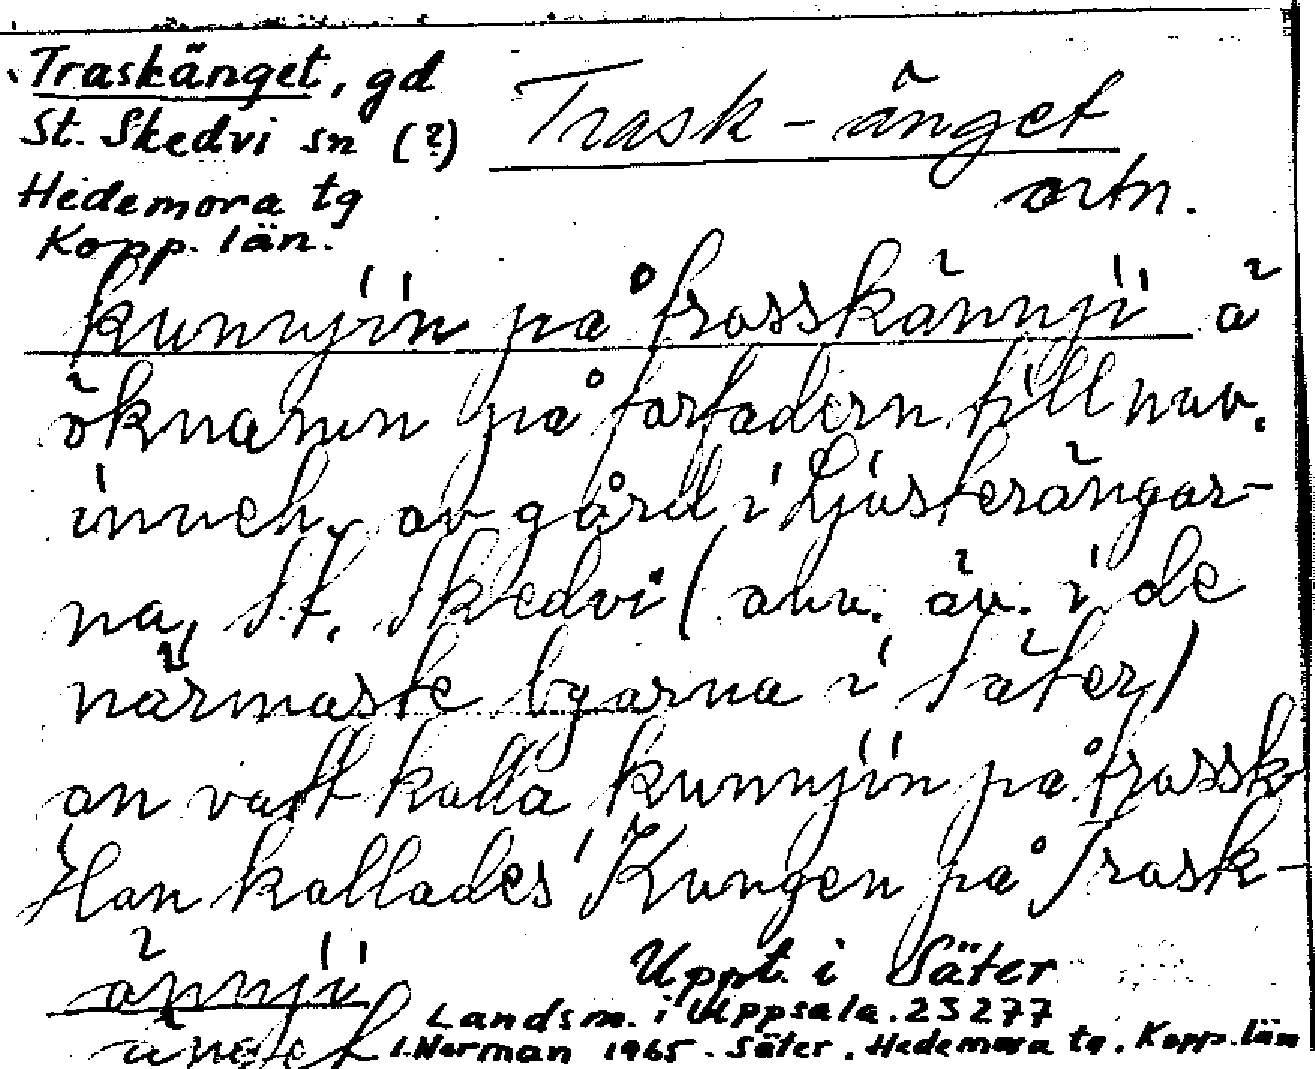 Traskänget, gd
St. Skedvi sn (?)
Hedemora tg
Kopp. län.
Trask-änget
ortn.
kunnjin på trasskännji ä
öknamn på farfadern till nuv.
inneh. av gård i Ljusterängar-
na, St. Skedvi (anv. äv. i de
närmaste byarna i Säter)
an vatt kalla kunnjin på trassk-
Han kallades Kungen på Trask-
ännji
änget
Uppt. i Säter
Landsm. i Uppsala. 23277
I. Norman 1965. Säter, Hedemora tg, Kopp. län